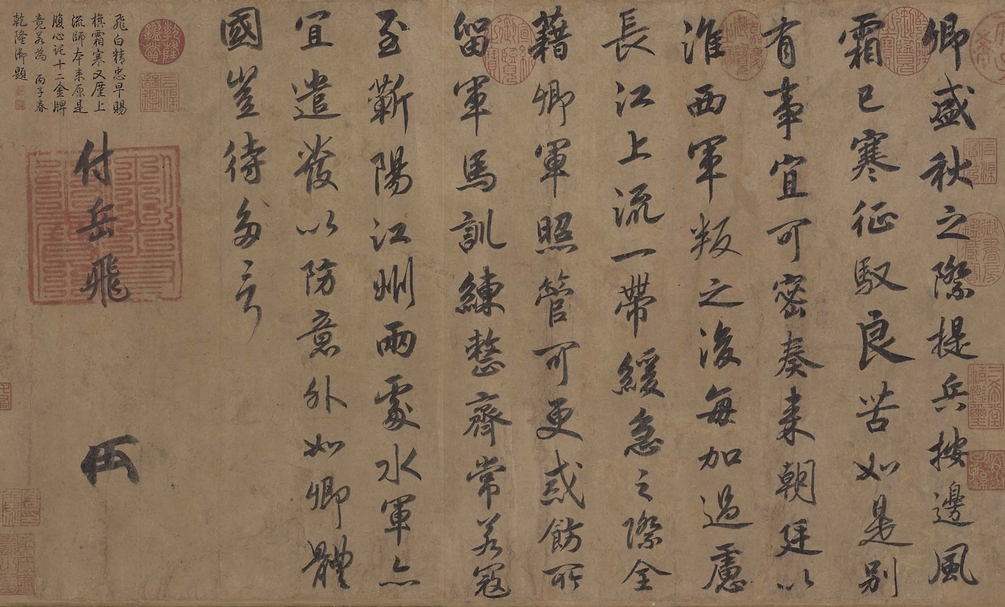 卿盛秋之際提兵按邊風
霜已寒征馭良苦如是別
有事宜可密奏来朝廷以
淮西軍叛之後每加過慮
長江上流一帶緩急之際全
藉卿軍照管可更戒飭所
留軍馬訓練整齊常若寇
至蘄陽江州兩處水軍亦
宜遣發以防意外如卿體
國豈待多言
付岳飛
飛白精忠早賜
旗霜寒又屢上
流師本来原是
腹心託十二金牌
竟若為 丙子春
乾隆御題